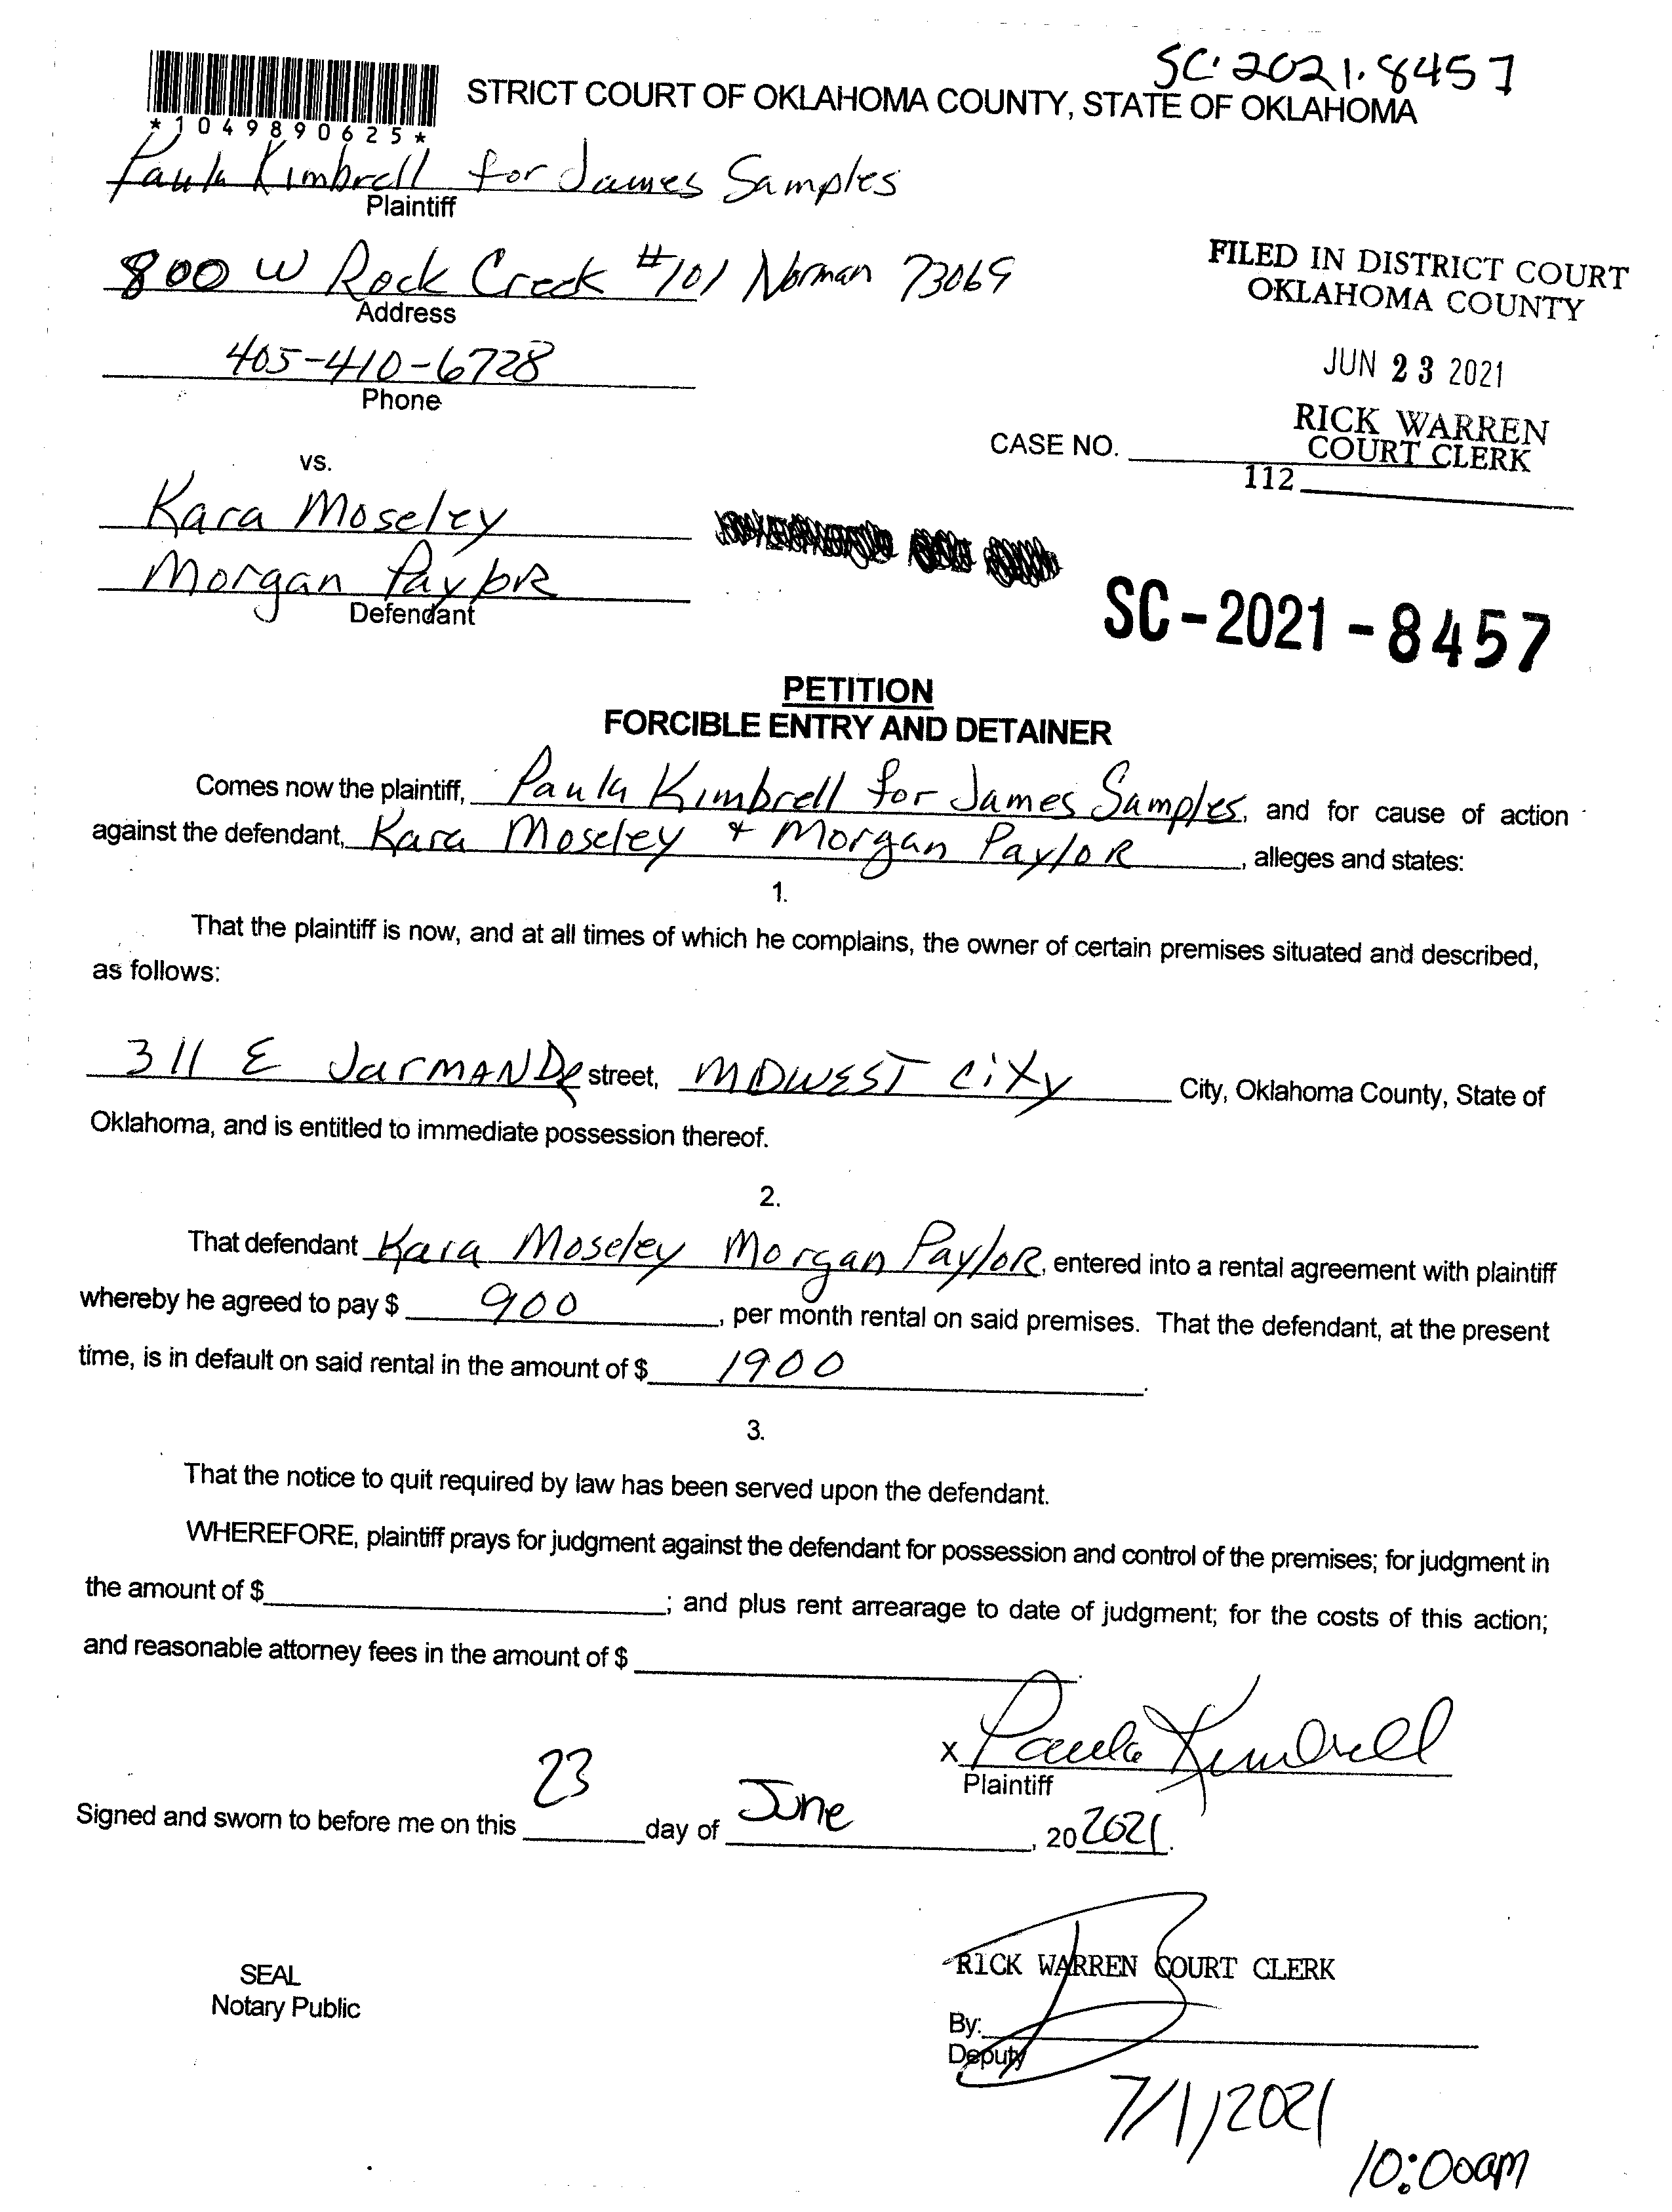 SC-2021-8457
STRICT COURT OF OKLAHOMA COUNTY, STATE OF OKLAHOMA
*1049890625*
Paula Kimbrell for James Samples
Plaintiff
800 W Rock Creek #101 Norman 73069
Address
FILED IN DISTRICT COURT
OKLAHOMA COUNTY
405-410-6728
Phone
JUN 23 2021
RICK WARREN
COURT CLERK
CASE NO.
112
vs.
Kara Moseley
Morgan Paylor
Defendant
SC-2021-8457
PETITION
FORCIBLE ENTRY AND DETAINER
Comes now the plaintiff, Paula Kimbrell for James Samples, and for cause of action
against the defendant, Kara Moseley + Morgan PayloR, alleges and states:
1.
That the plaintiff is now, and at all times of which he complains, the owner of certain premises situated and described,
as follows:
311 E JarMAN DR street, MDWEST CiTy City, Oklahoma County, State of
Oklahoma, and is entitled to immediate possession thereof.
2.
That defendant Kara Moseley Morgan PayloR, entered into a rental agreement with plaintiff
whereby he agreed to pay $ 900, per month rental on said premises. That the defendant, at the present
time, is in default on said rental in the amount of $ 1900.
3.
That the notice to quit required by law has been served upon the defendant.
WHEREFORE, plaintiff prays for judgment against the defendant for possession and control of the premises; for judgment in
the amount of $ ; and plus rent arrearage to date of judgment; for the costs of this action;
and reasonable attorney fees in the amount of $ .
x Paula Kimbrell
Plaintiff
Signed and sworn to before me on this 23 day of June, 20 2021.
SEAL
Notary Public
RICK WARREN COURT CLERK
By:
Deputy
7/1/2021
10:00am